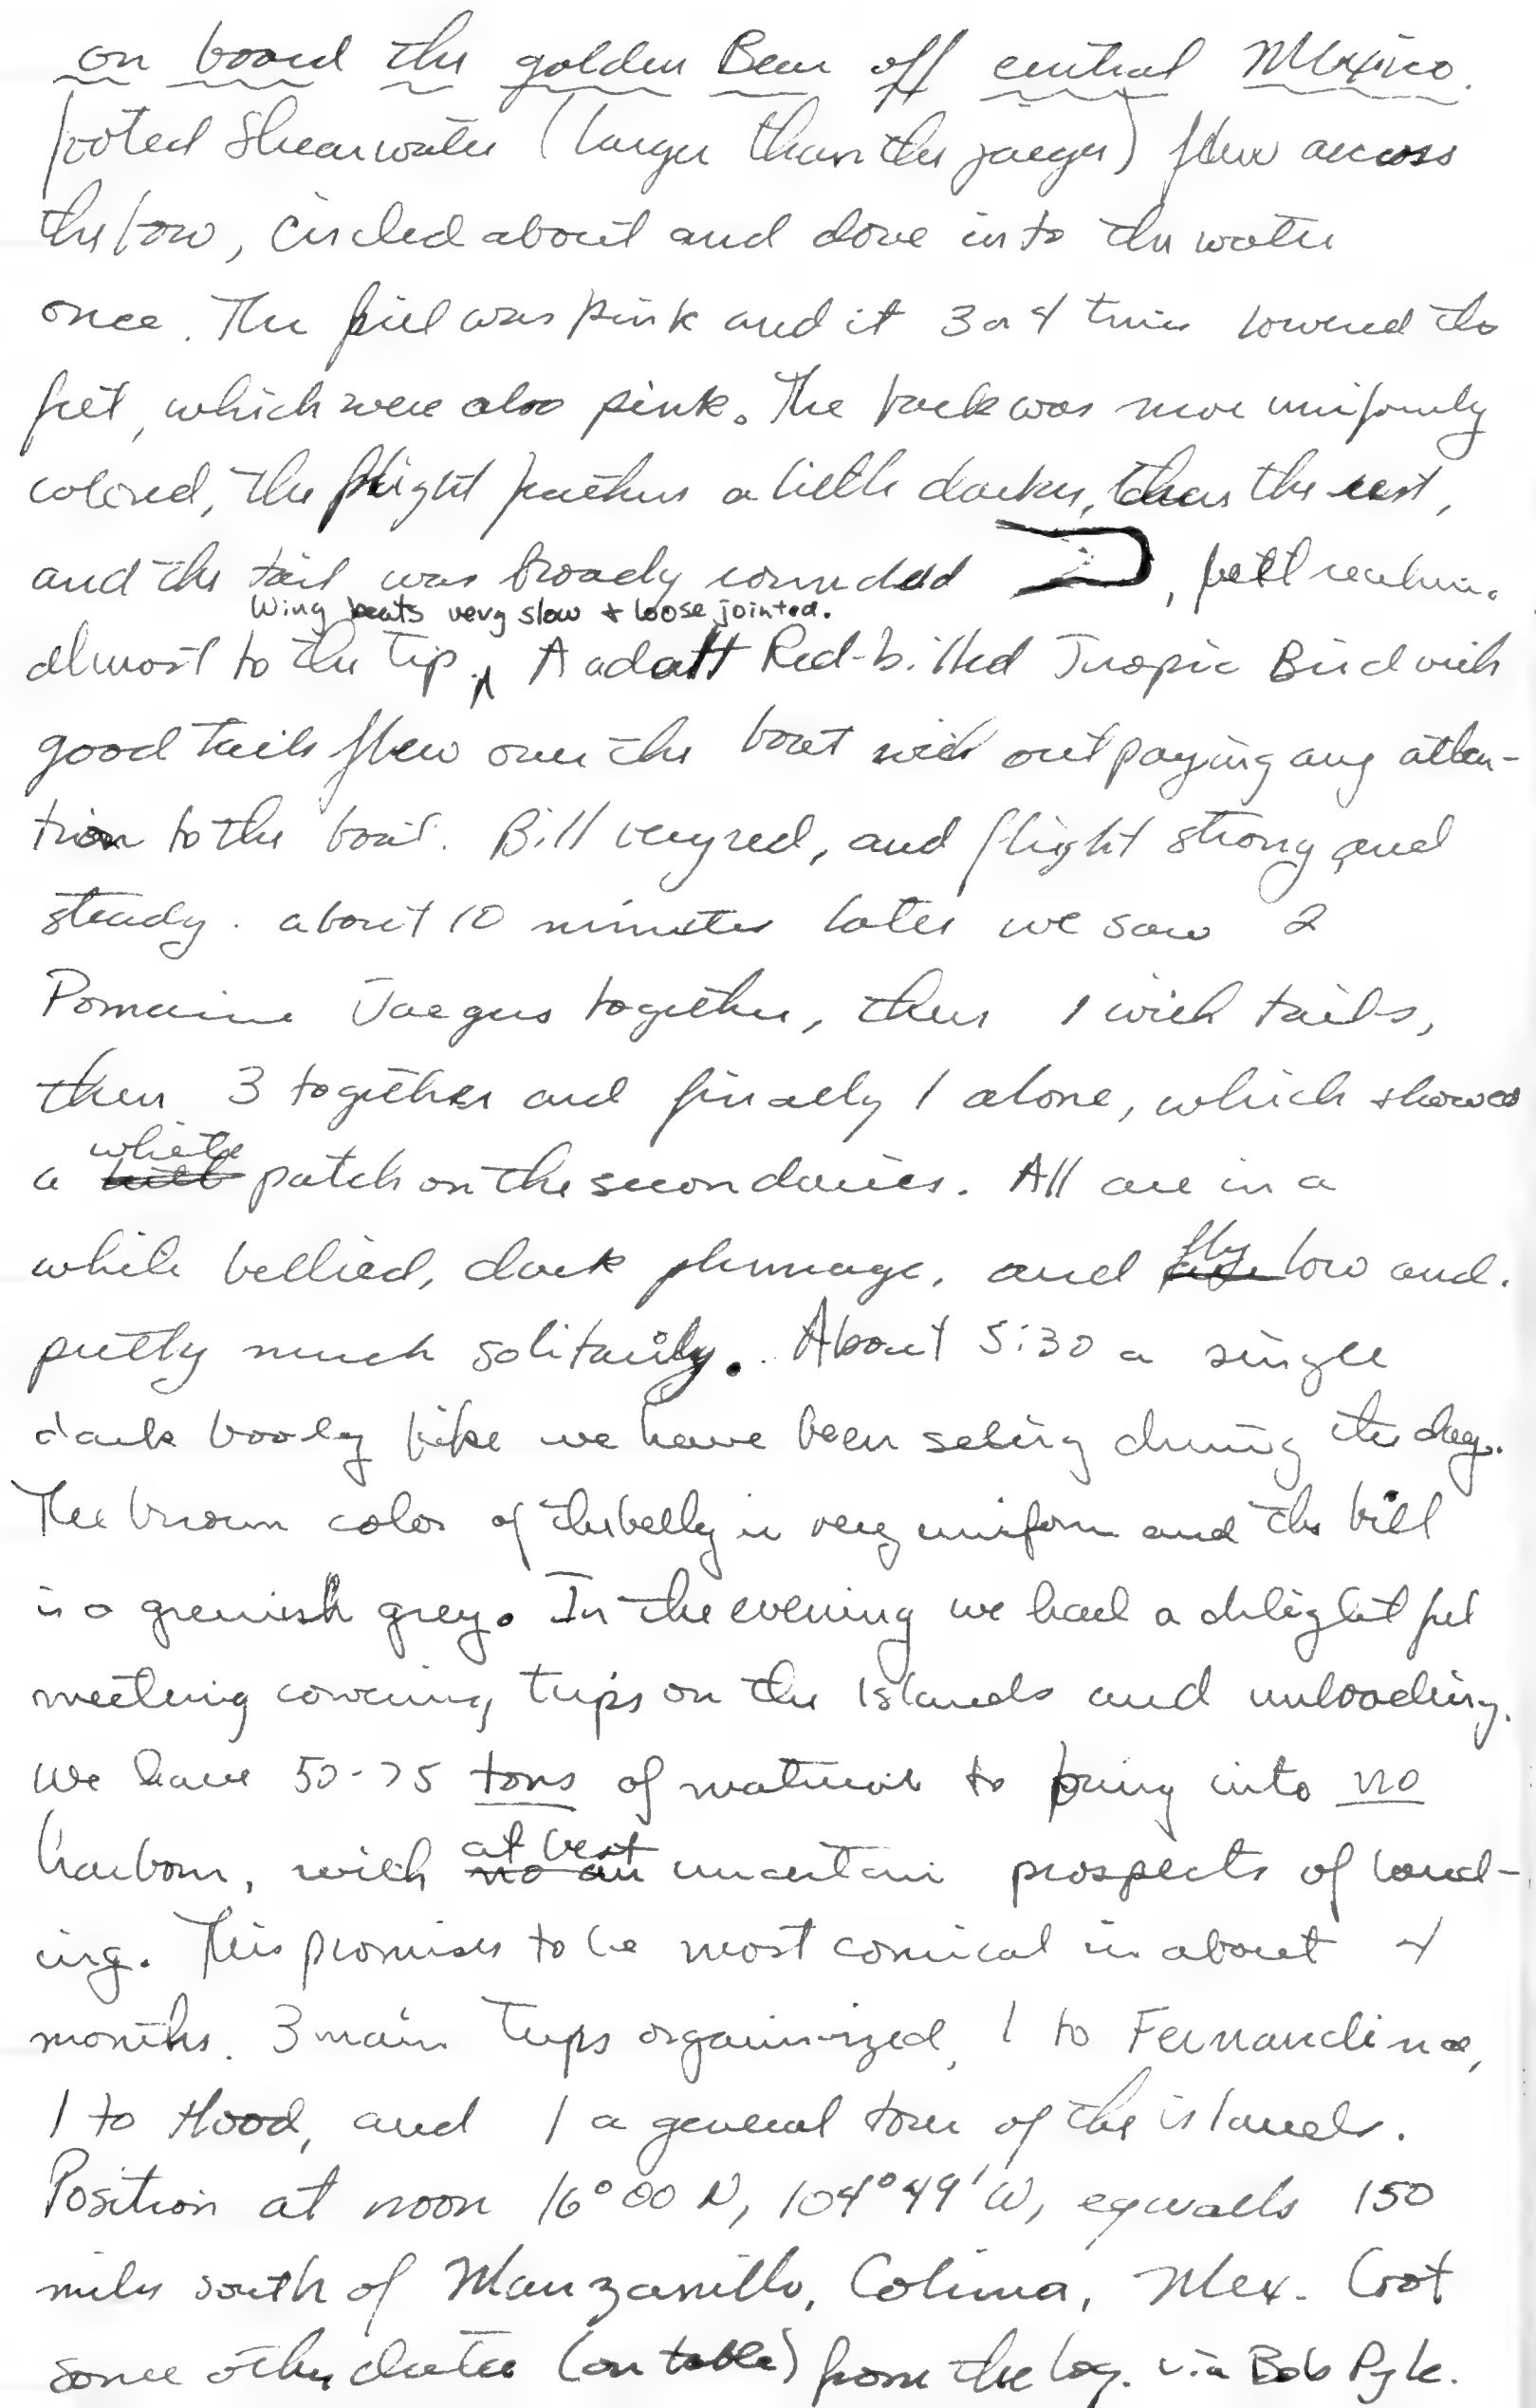 on board the golden Bear off central Mexico.
footed Shearwater (larger than the jaeger) flew across
the bow, circled about and dove into the water
once. The bill was pink and it 3 or 4 times lowered the
feet, which were also pink. The back was more uniformly
colored, the flight feathers a little darker, than the rest,
and the tail was broadly rounded , feet reaching
Wing beats very slow + loose jointed.
almost to the tip. A adult Red-billed Tropic Bird with
good tails flew over the boat with out paying any atten-
tion to the boat. Bill very red, and flight strong and
steady. about 10 minutes later we saw 2
Pomarine Jaegers together, then 1 with tails,
then 3 together and finally 1 alone, which showed
white
a patch on the secondaries. All are in a
fly
white bellied, dark plumage, and low and
pretty much solitarily. About 5:30 a single
dark booby like we have been seeing during the day.
The brown color of the belly is very uniform and the bill
is a greenish grey. In the evening we had a delightful
meeting covering trips on the Islands and unloading.
We have 50-75 tons of material to bring into no
at best
harbour, with uncertain prospects of land-
ing. This promises to be most comical in about 4
months. 3 main trips organized, 1 to Fernandina,
1 to Hood, and 1 a general tour of the islands.
Position at noon 16°00 N, 104°49' W, eqwalls 150
miles south of Manzanillo, Colima, Mex. Got
some other data (on table) from the log. via Bob Pyle.